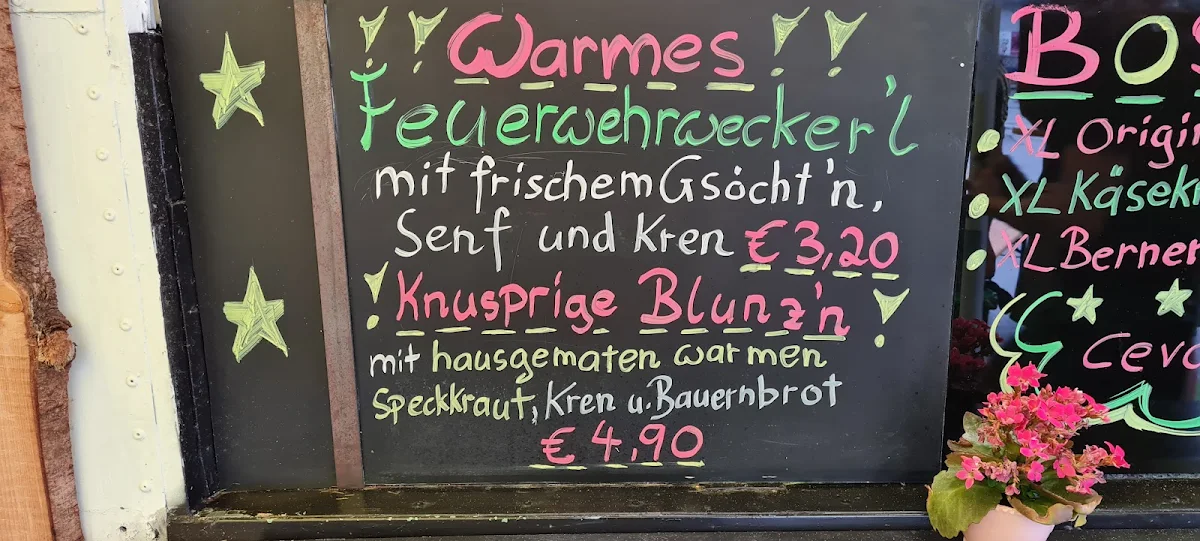 ! ! Warmes ! !
Feuerwehrweckerl
mit frischem Gsöcht'n,
Senf und Kren €3,20
! Knusprige Blunz'n !
mit hausgematen warmen
Speckkraut, Kren u. Bauernbrot
€ 4,90
XL
XL
XL Berner